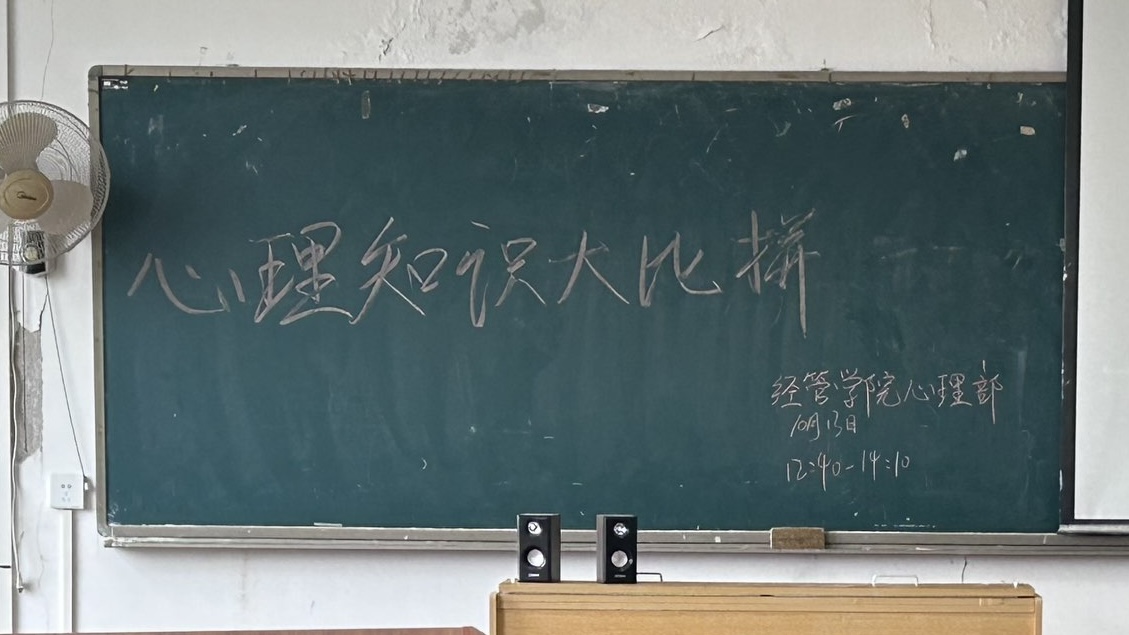 心理知识大比拼
经管学院心理部
10月13日
12:40-14:10